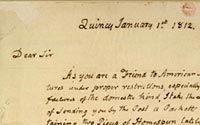 Quincy January 1st 1812.
Dear Sir
As you are a Friend to American
tures under proper restrictions, especially
factures of the domestic kind, I take the
of sending you by the Post a Packett
taining two Pieces of Homespun lately